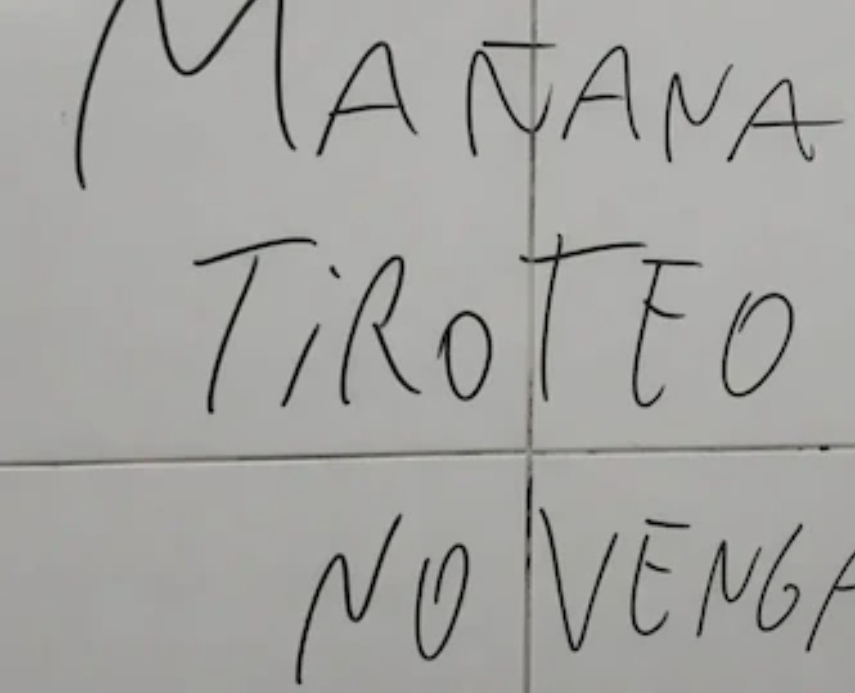 MAÑANA
TiROTEO
NO VENGA